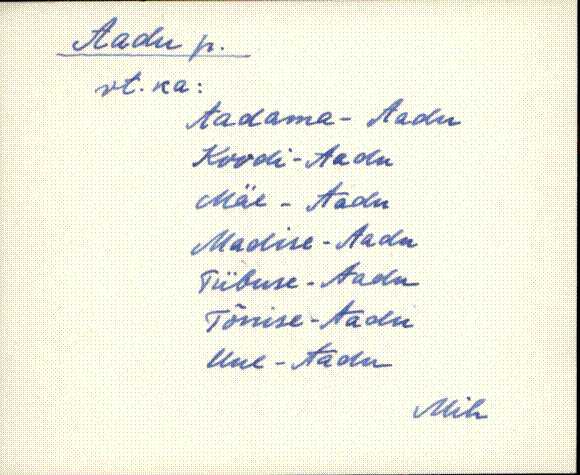 Aadu p.
vt. ka:
Aadama - Aadu
Koodi - Aadu
Mäe - Aadu
Madise - Aadu
Tiibuse - Aadu
Tõnise - Aadu
Uue - Aadu
Mih